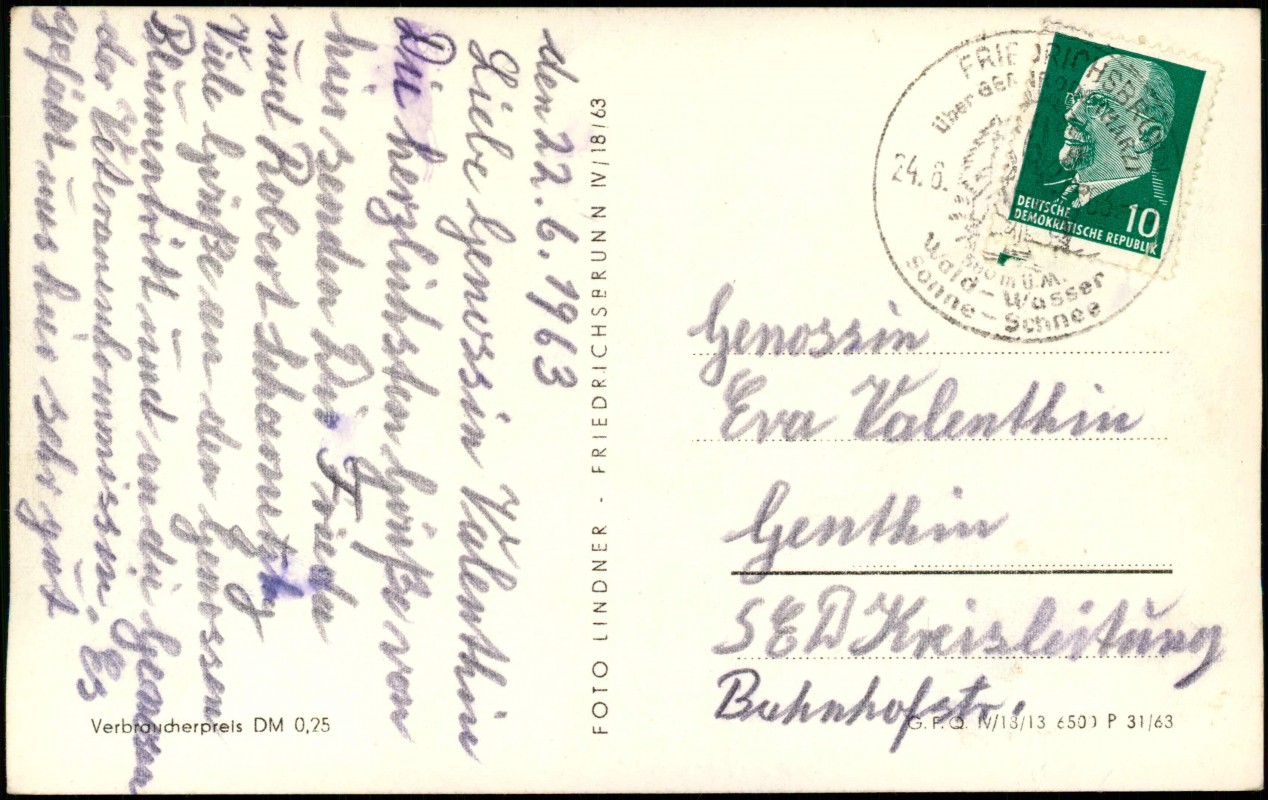 den 22.6.1963
Liebe Genossin Valenthin
Die herzlichsten Grüße von
hir senden Dir Frieda
und Robert
Viele Grüße an den Genossen
und an die Genossen
der Veteranenkommission. Es
gefällt uns hir sehr gut
FOTO LINDNER - FRIEDRICHSBRUNN IV/18/63
Verbraucherpreis DM 0,25
FRIEDRICHSBRUNN
24.6.
Wald-Wasser
Sonne-Schnee
DEUTSCHE
DEMOKRATISCHE REPUBLIK
10
Genossin
Eva Valenthin
Genthin
SED Kreisleitung
Bahnhofstr.
G.P.Q. IV/13/13 6500 P 31/63